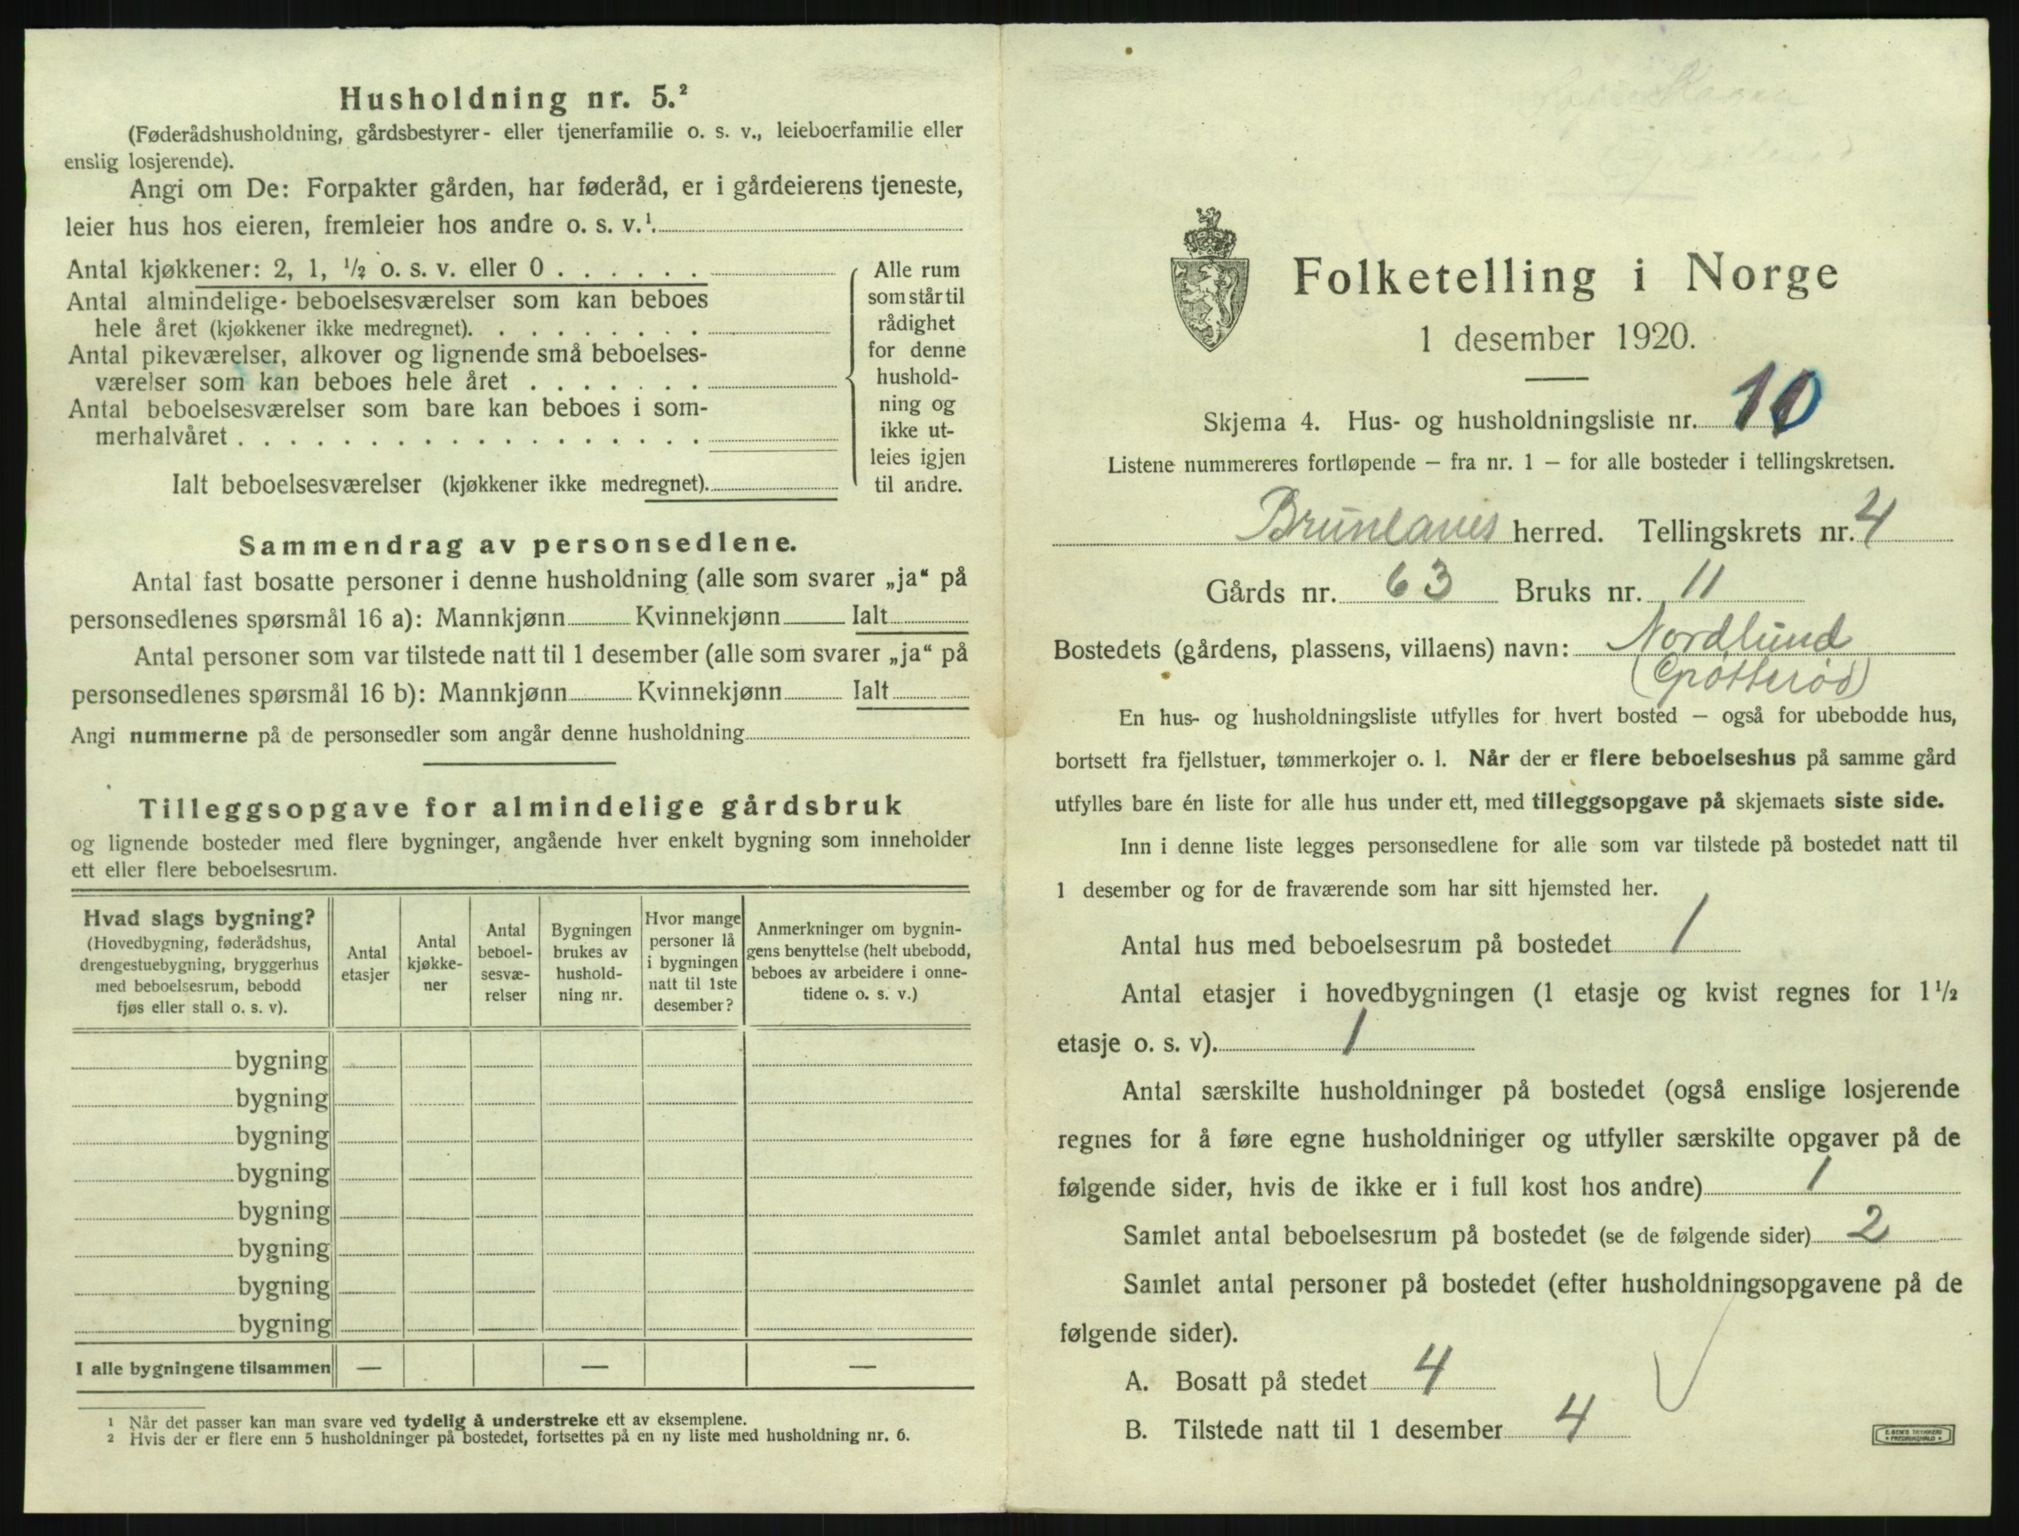 Husholdning nr. 5.²
(Føderådshusholdning, gårdsbestyrer- eller tjenerfamilie o. s. v., leieboerfamilie eller
enslig losjerende).
Angi om De: Forpakter gården, har føderåd, er i gårdeierens tjeneste,
leier hus hos eieren, fremleier hos andre o. s. v.¹
Antal kjøkkener: 2, 1, ½ o. s. v. eller 0 . . . . . .
Antal almindelige beboelsesværelser som kan beboes
hele året (kjøkkener ikke medregnet). . . . . . . . .
Antal pikeværelser, alkover og lignende små beboelses-
værelser som kan beboes hele året . . . . . . .
Antal beboelsesværelser som bare kan beboes i som-
merhalvåret . . . . . . . . . . . . . . . . . .
Ialt beboelsesværelser (kjøkkener ikke medregnet).
Alle rum
som står til
rådighet
for denne
hushold-
ning og
ikke ut-
leies igjen
til andre.
Sammendrag av personsedlene.
Antal fast bosatte personer i denne husholdning (alle som svarer „ja“ på
personsedlenes spørsmål 16 a): Mannkjønn Kvinnekjønn Ialt
Antal personer som var tilstede natt til 1 desember (alle som svarer „ja“ på
personsedlenes spørsmål 16 b): Mannkjønn Kvinnekjønn Ialt
Angi nummerne på de personsedler som angår denne husholdning
Tilleggsopgave for almindelige gårdsbruk
og lignende bosteder med flere bygninger, angående hver enkelt bygning som inneholder
ett eller flere beboelsesrum.
Hvad slags bygning?
(Hovedbygning, føderådshus,
drengestuebygning, bryggerhus
med beboelsesrum, bebodd
fjøs eller stall o. s. v).
Antal
etasjer
Antal
kjøkke-
ner
Antal
beboel-
sesvæ-
relser
Bygningen
brukes av
hushold-
ning nr.
Hvor mange
personer lå
i bygningen
natt til 1ste
desember?
Anmerkninger om bygnin-
gens benyttelse (helt ubebodd,
beboes av arbeidere i onne-
tidene o. s. v.)
bygning
bygning
bygning
bygning
bygning
bygning
bygning
bygning
I alle bygningene tilsammen — — —
¹ Når det passer kan man svare ved tydelig å understreke ett av eksemplene.
² Hvis der er flere enn 5 husholdninger på bostedet, fortsettes på en ny liste med husholdning nr. 6.
Folketelling i Norge
1 desember 1920.
Skjema 4. Hus- og husholdningsliste nr. 10
Listene nummereres fortløpende – fra nr. 1 – for alle bosteder i tellingskretsen.
Brunlanes herred. Tellingskrets nr. 4
Gårds nr. 63 Bruks nr. 11
Bostedets (gårdens, plassens, villaens) navn: Nordlund
(Grøtterød)
En hus- og husholdningsliste utfylles for hvert bosted – også for ubebodde hus,
bortsett fra fjellstuer, tømmerkojer o. l. Når der er flere beboelseshus på samme gård
utfylles bare én liste for alle hus under ett, med tilleggsopgave på skjemaets siste side.
Inn i denne liste legges personsedlene for alle som var tilstede på bostedet natt til
1 desember og for de fraværende som har sitt hjemsted her.
Antal hus med beboelsesrum på bostedet 1
Antal etasjer i hovedbygningen (1 etasje og kvist regnes for 1½
etasje o. s. v). 1
Antal særskilte husholdninger på bostedet (også enslige losjerende
regnes for å føre egne husholdninger og utfyller særskilte opgaver på de
følgende sider, hvis de ikke er i full kost hos andre) 1
Samlet antal beboelsesrum på bostedet (se de følgende sider) 2
Samlet antal personer på bostedet (efter husholdningsopgavene på de
følgende sider).
A. Bosatt på stedet 4
B. Tilstede natt til 1 desember 4